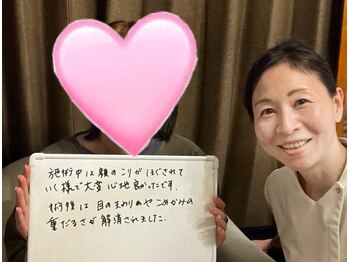 施術中は顔のこりがほぐされて
いく様で大変心地良かったです。
術後は目のまわりのやこめかみの
重だるさが解消されました。